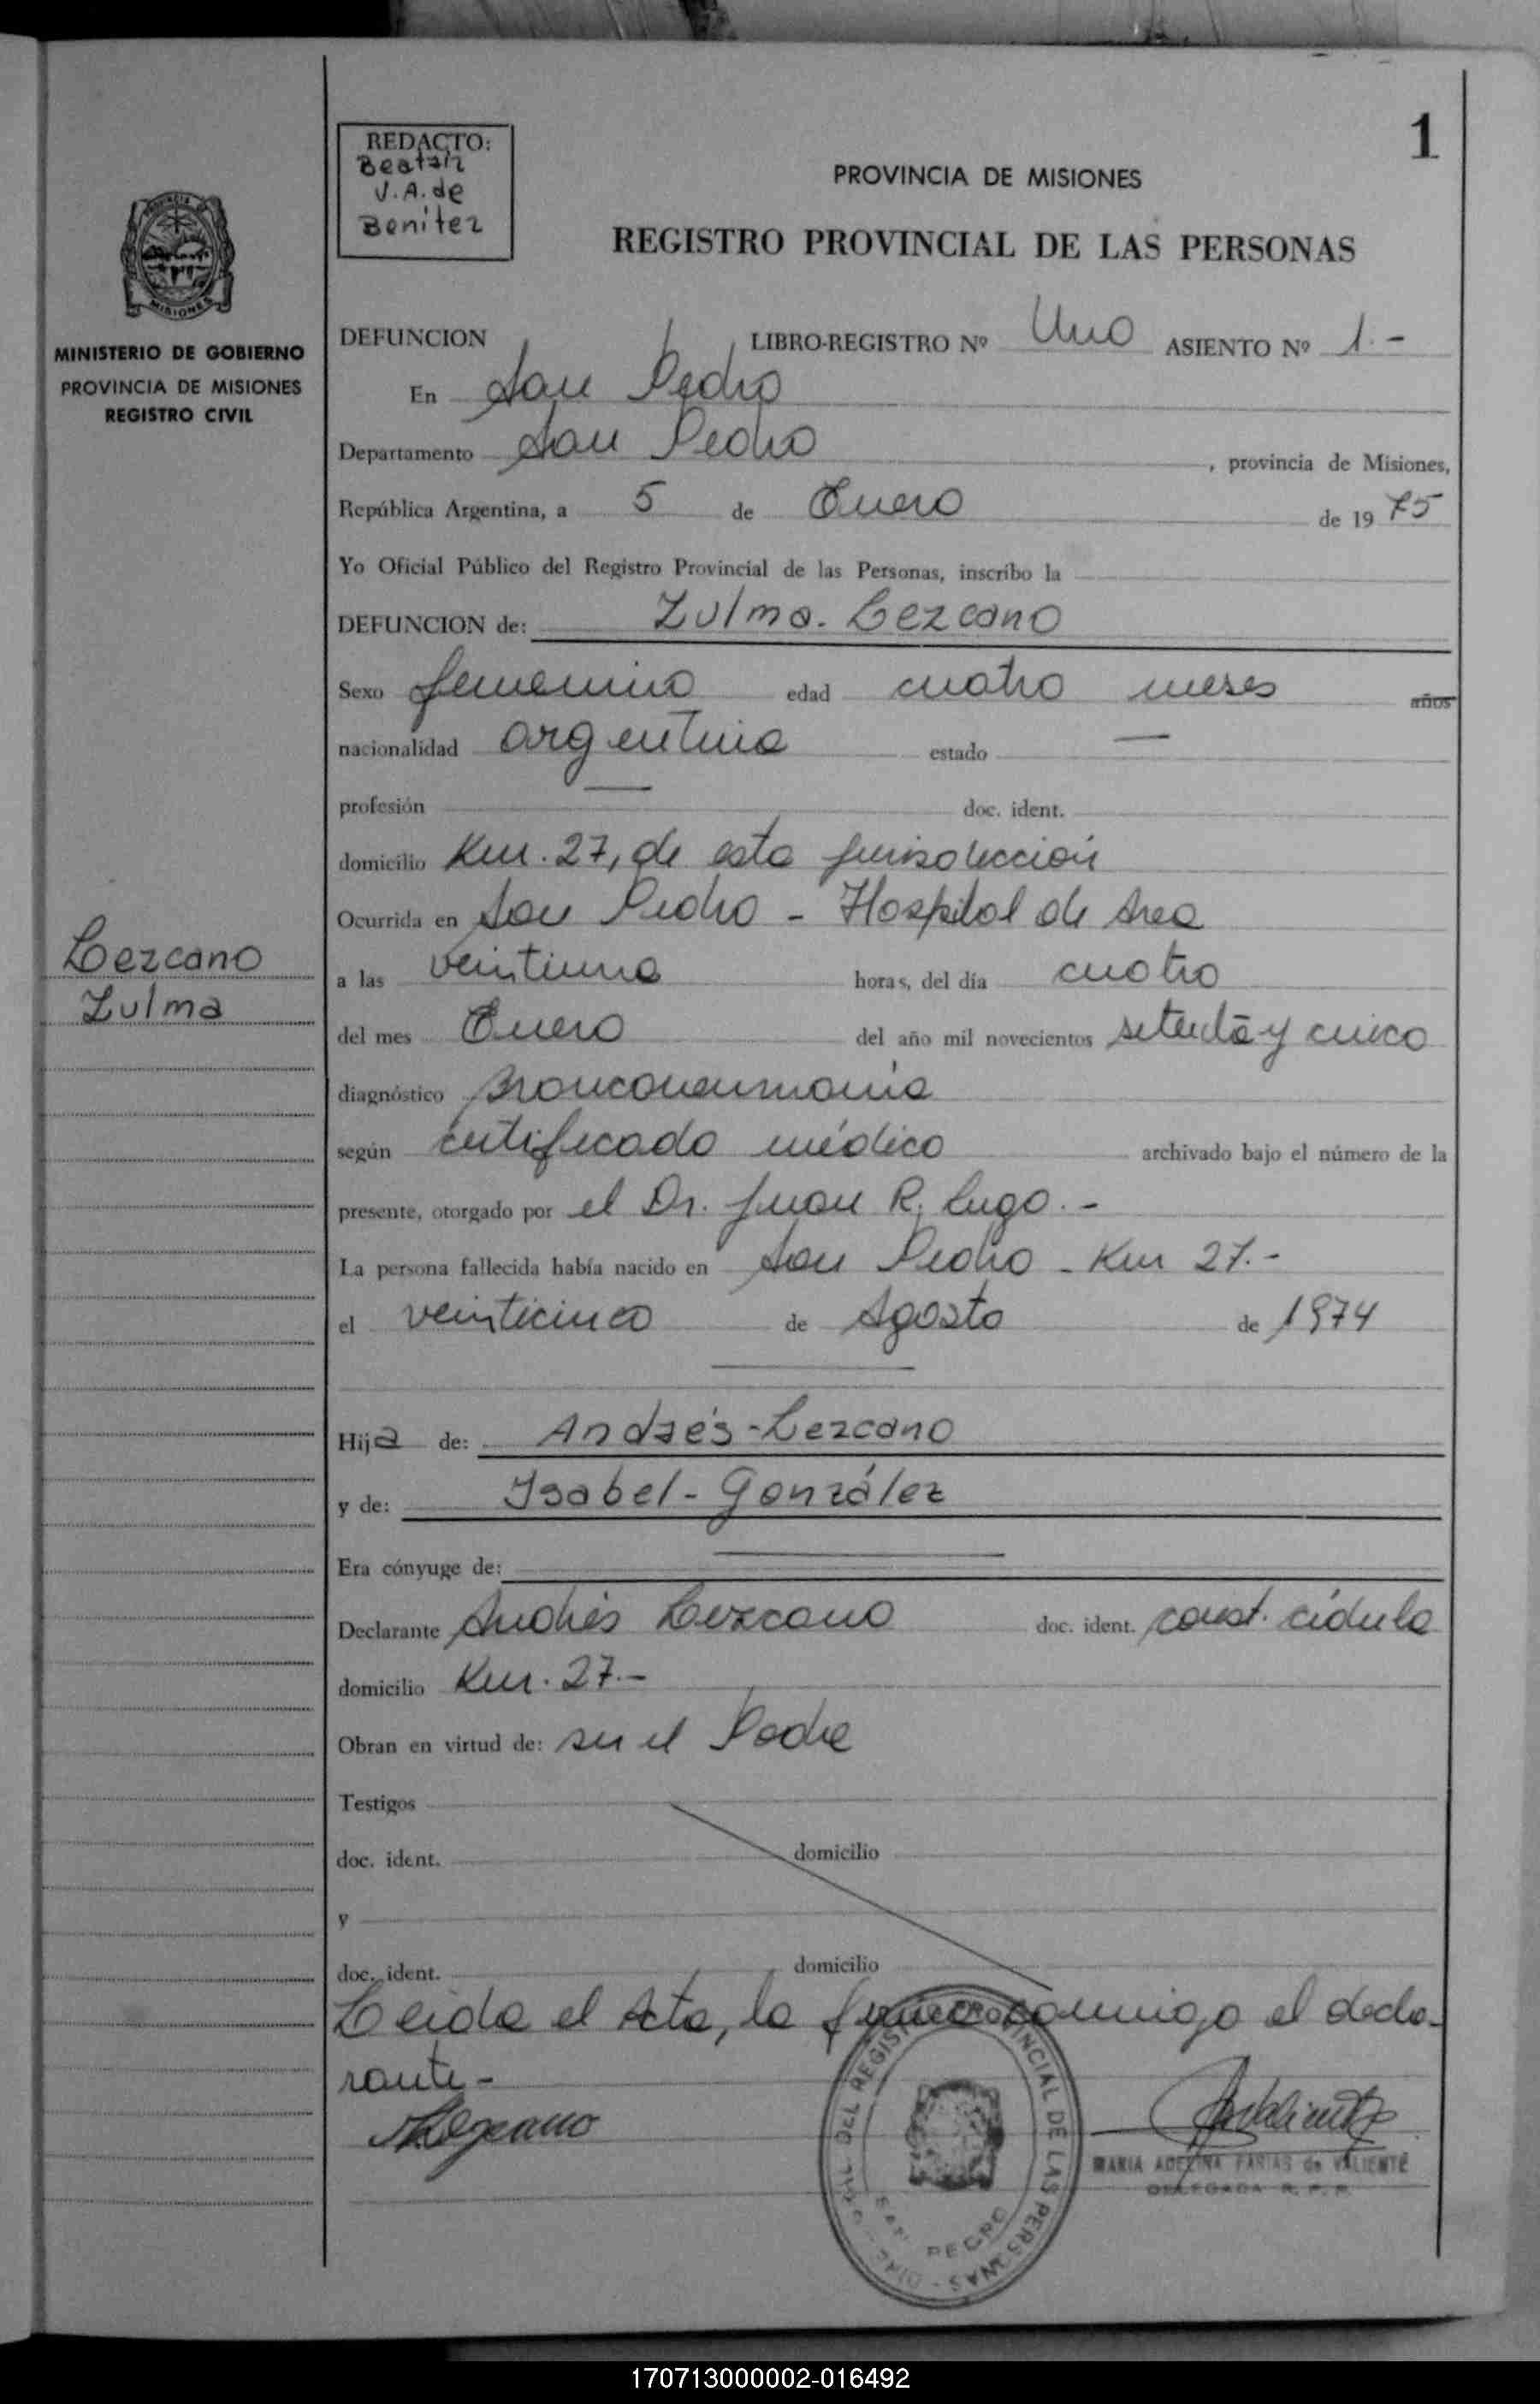 1
REDACTO:
Beatriz
V. A. de
Benitez
PROVINCIA DE MISIONES
REGISTRO PROVINCIAL DE LAS PERSONAS
MISIONES
MINISTERIO DE GOBIERNO
PROVINCIA DE MISIONES
REGISTRO CIVIL
DEFUNCION LIBRO-REGISTRO Nº Uno ASIENTO Nº 1.-
En San Pedro
Departamento San Pedro, provincia de Misiones,
República Argentina, a 5 de Enero de 1975
Yo Oficial Público del Registro Provincial de las Personas, inscribo la
DEFUNCION de: Zulma. Lezcano
Sexo femenino edad cuatro meses años
nacionalidad argentina estado —
profesión — doc. ident.
domicilio Km. 27, de esta jurisdicción
Ocurrida en San Pedro - Hospital de Area
Lezcano
Zulma
a las veintiuna horas, del día cuatro
del mes Enero del año mil novecientos setenta y cinco
diagnóstico Bronconeumonia
según certificado médico archivado bajo el número de la
presente, otorgado por el Dr. Juan R. Lugo.-
La persona fallecida había nacido en San Pedro - Km 27.-
el veinticinco de Agosto de 1974
Hija de: Andrés - Lezcano
y de: Isabel - González
Era cónyuge de:
Declarante Andrés Lezcano doc. ident. const. cédula
domicilio Km. 27.-
Obran en virtud de: ser el Padre
Testigos
doc. ident. domicilio
y
doc. ident. domicilio
Leida el Acta, la firma conmigo el decla-
rante -
ALezcano
MARIA ADELINA FARIAS de VALIENTE
DELEGADA R. P. P.
DEL REGISTRO PROVINCIAL DE LAS PERSONAS
SAN PEDRO
170713000002-016492